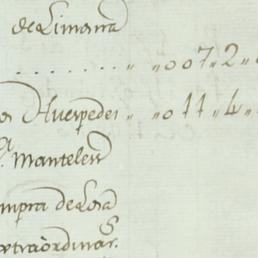 de Limosna
. . . . . . . " " 007 " 2 "
os Huespedes " " 011 " 4 "
a Manteles
mpra de Losa
extraòrdinars.